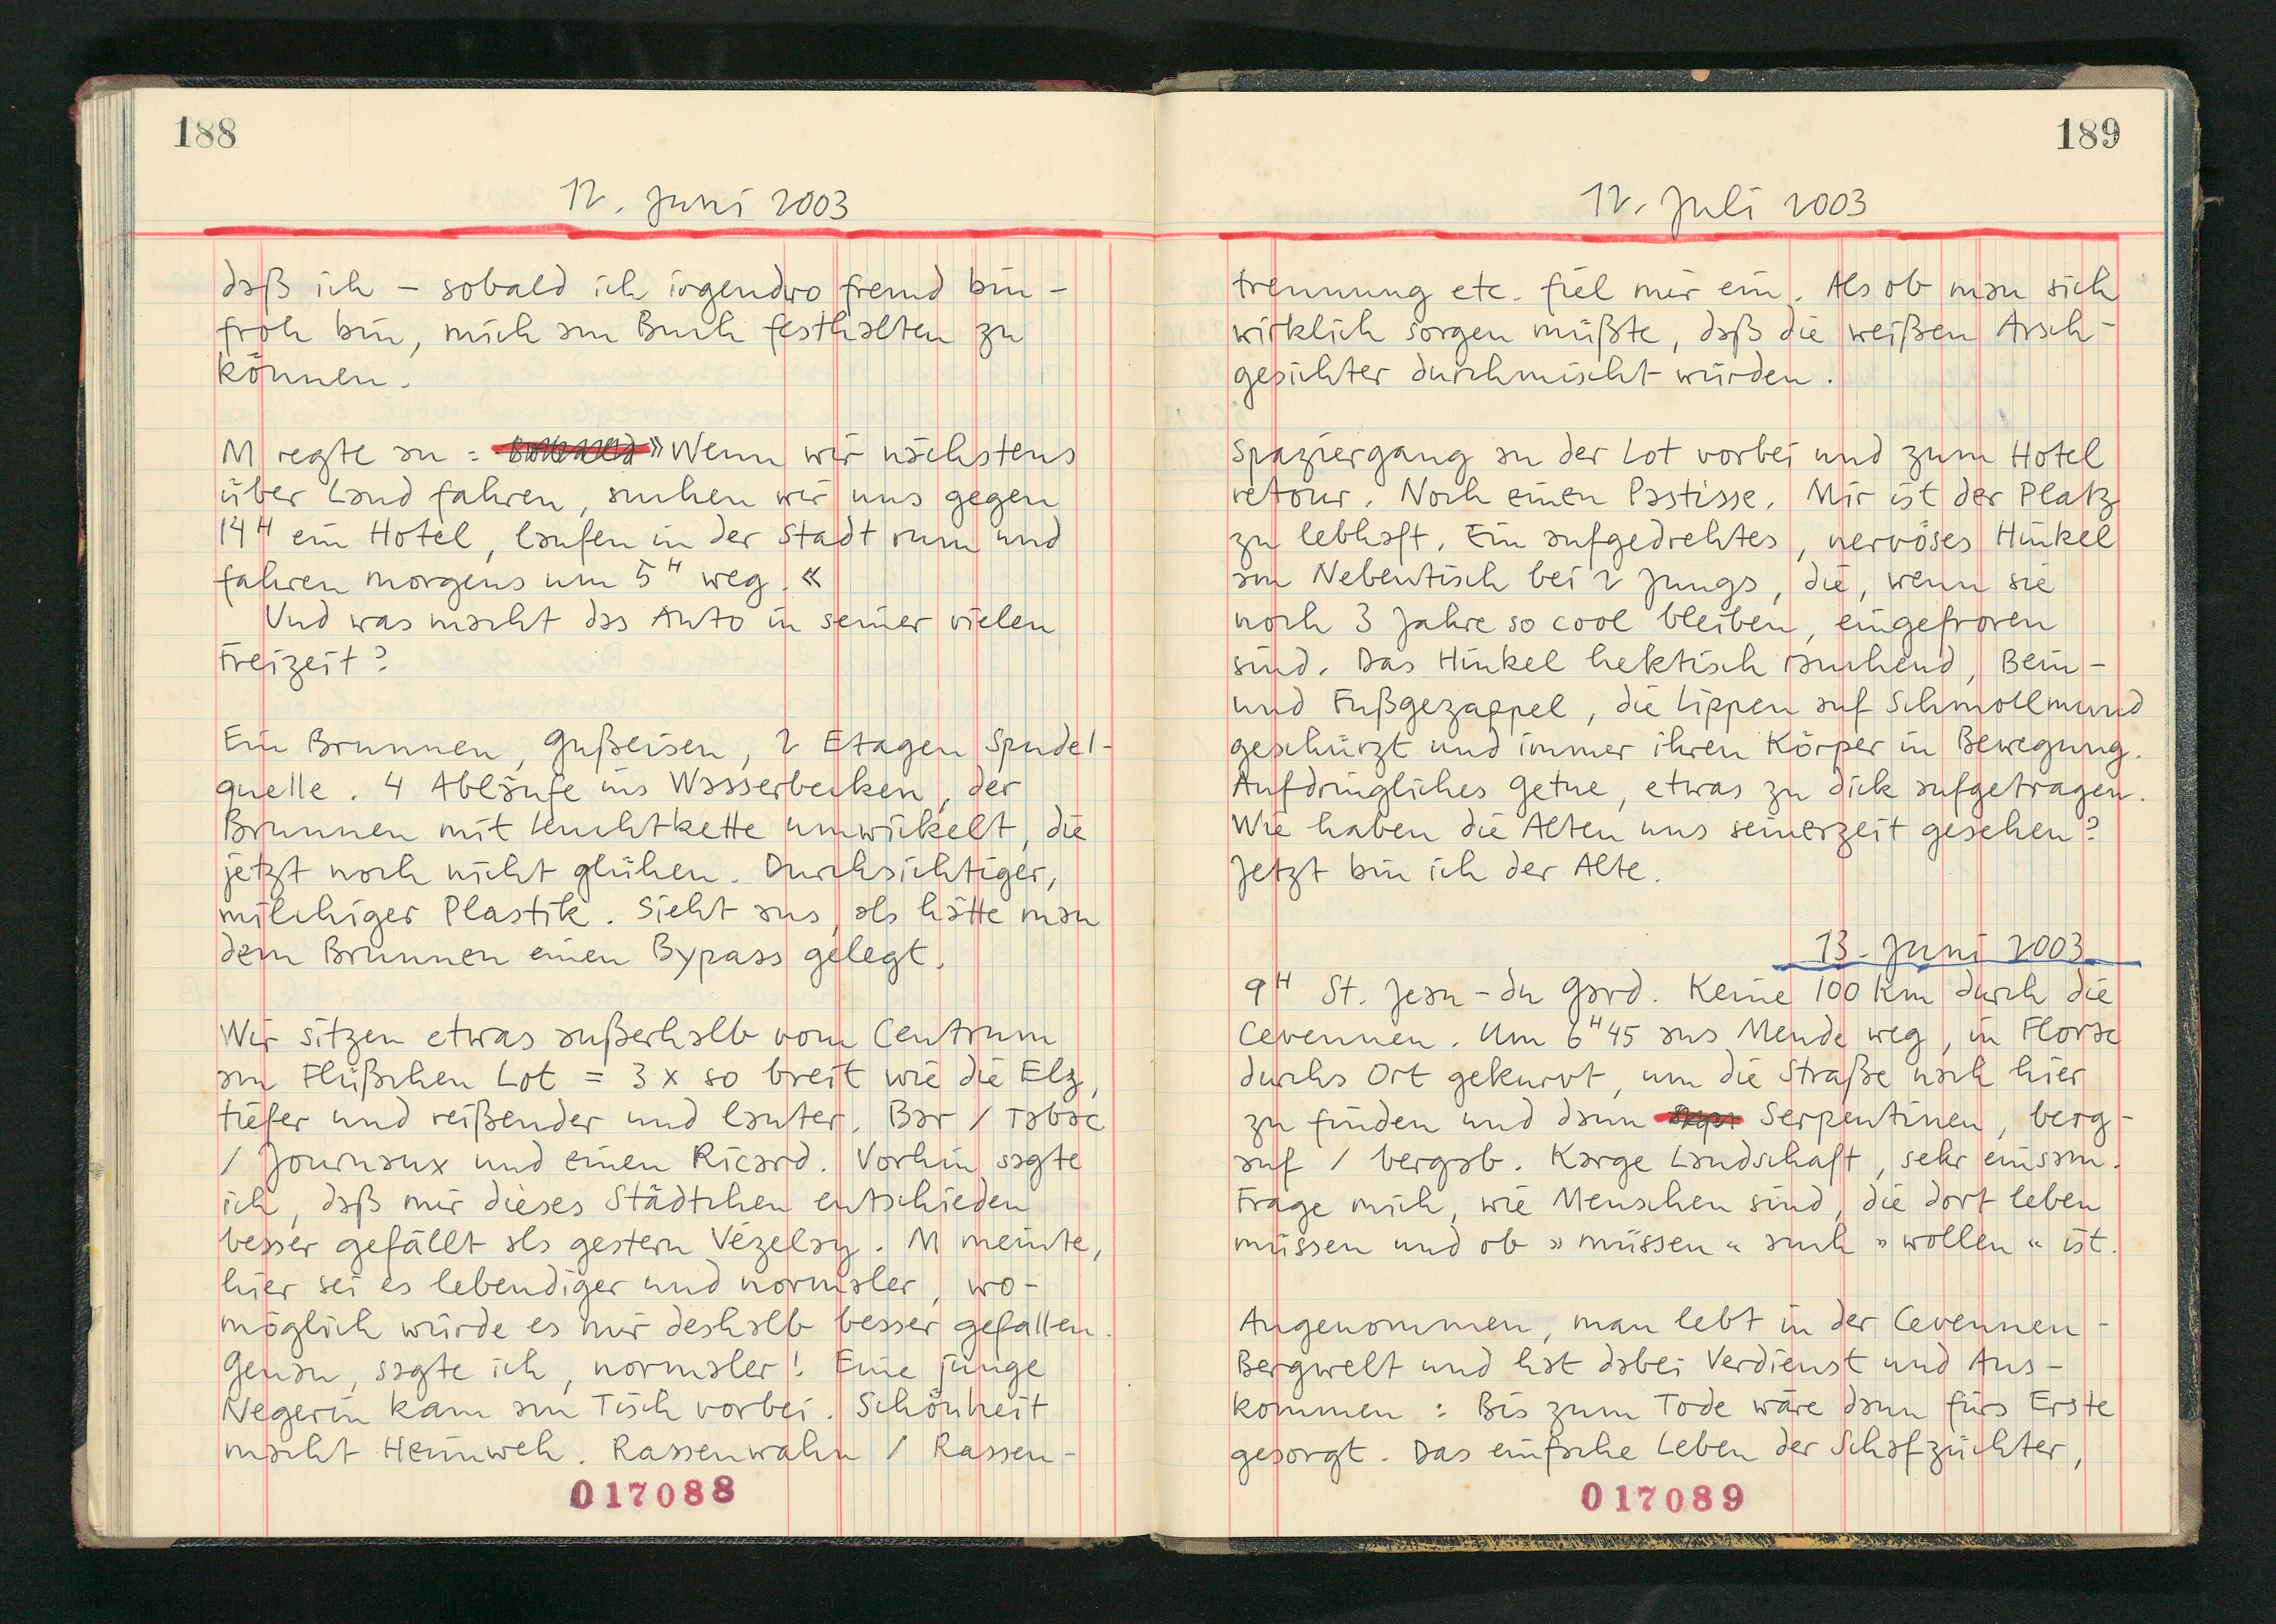 188
12. Juni 2003
daß ich – sobald ich irgendwo fremd bin –
froh bin, mich am Buch festhalten zu
können.
M regte an : »Wenn wir nächstens
über Land fahren, suchen wir uns gegen
14 H ein Hotel, laufen in der Stadt rum und
fahren morgens um 5 H weg.«
Und was macht das Auto in seiner vielen
Freizeit?
Ein Brunnen, Gußeisen, 2 Etagen Spudel-
quelle. 4 Abläufe ins Wasserbecken, der
Brunnen mit Leuchtkette umwickelt, die
jetzt noch nicht glühen. Durchsichtiger,
milchiger Plastik. Sieht aus, als hätte man
dem Brunnen einen Bypass gelegt.
Wir sitzen etwas außerhalb vom Centrum
am Flüßchen Lot = 3 x so breit wie die Elz,
tiefer und reißender und lauter. Bar / Tabac
/ Journaux und einen Ricard. Vorhin sagte
ich, daß mir dieses Städtchen entschieden
besser gefällt als gestern Vézelay. M meinte,
hier sei es lebendiger und normaler, wo-
möglich würde es mir deshalb besser gefallen.
Genau, sagte ich, normaler! Eine junge
Negerin kam am Tisch vorbei. Schönheit
macht Heimweh. Rassenwahn / Rassen-
017088
189
12. Juli 2003
trennung etc. fiel mir ein. Als ob man sich
wirklich sorgen müßte, daß die weißen Arsch-
gesichter durchmischt würden.
Spaziergang an der Lot vorbei und zum Hotel
retour. Noch einen Pastisse. Mir ist der Platz
zu lebhaft. Ein aufgedrehtes, nervöses Hinkel
am Nebentisch bei 2 Jungs, die, wenn sie
noch 3 Jahre so cool bleiben, eingefroren
sind. Das Hinkel hektisch rauchend, Bein-
und Fußgezappel, die Lippen auf Schmollmund
geschürzt und immer ihren Körper in Bewegung.
Aufdringliches Getue, etwas zu dick aufgetragen.
Wie haben die Alten uns seinerzeit gesehen?
Jetzt bin ich der Alte.
13. Juni 2003
9 H St. Jean-du Gard. Keine 100 Km durch die
Cevennen. Um 6 H 45 aus Mende weg, in Florac
durchs Ort gekurvt, um die Straße nach hier
zu finden und dann Serpentinen, berg-
auf / bergab. Karge Landschaft, sehr einsam.
Frage mich, wie Menschen sind, die dort leben
müssen und ob »müssen« auch »wollen« ist.
Angenommen, man lebt in der Cevennen-
Bergwelt und hat dabei Verdienst und Aus-
kommen : Bis zum Tode wäre dann fürs Erste
gesorgt. Das einfache Leben der Schafzüchter,
017089